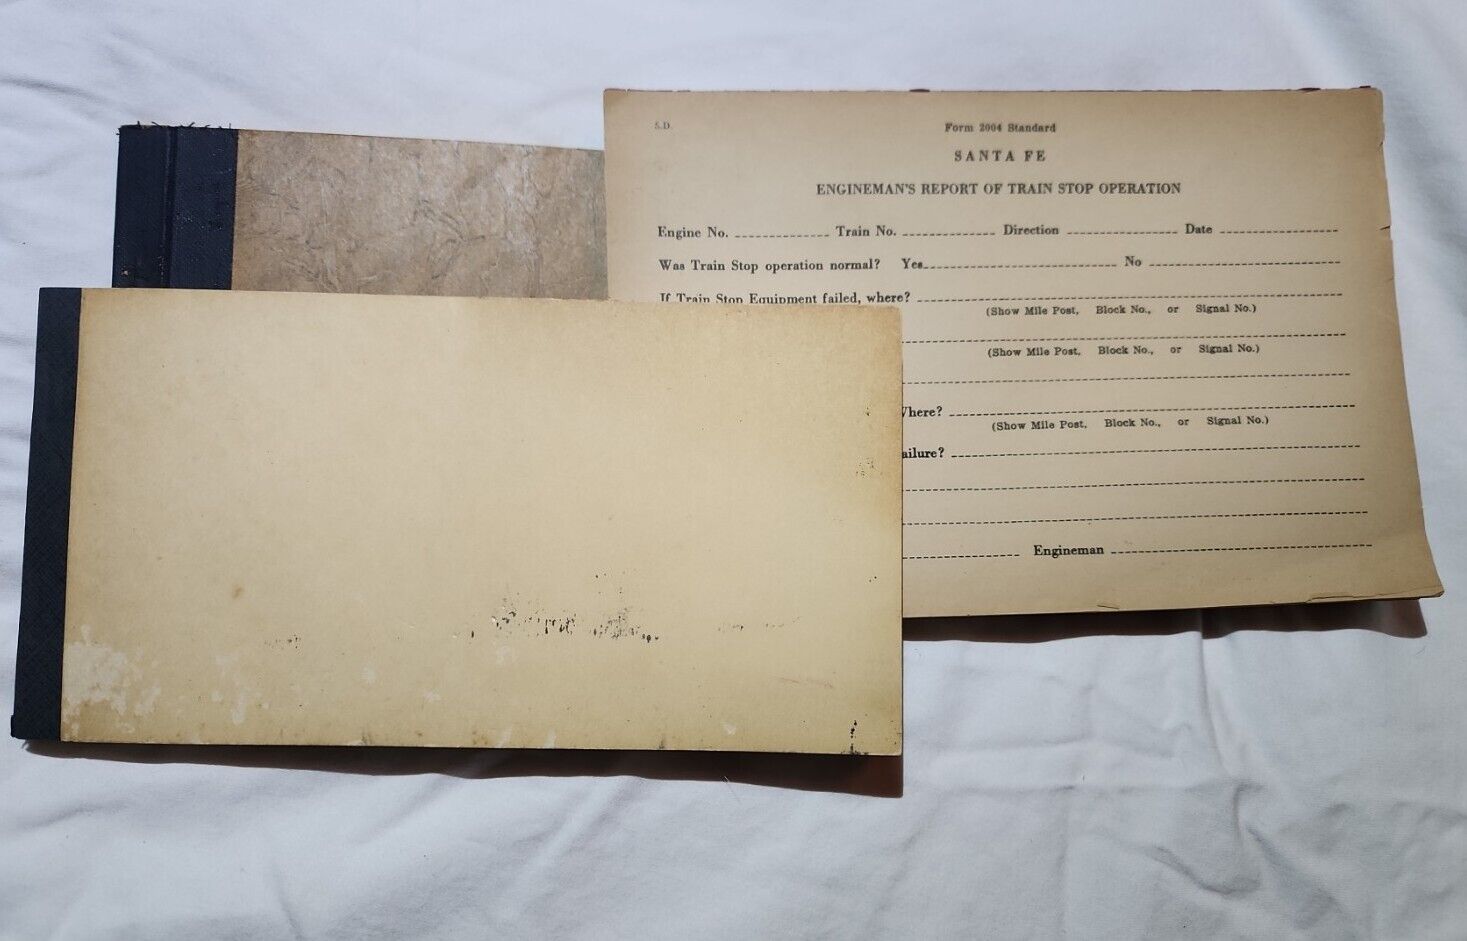 S.D.
Form 2004 Standard
SANTA FE
ENGINEMAN'S REPORT OF TRAIN STOP OPERATION
Engine No. Train No. Direction Date
Was Train Stop operation normal? Yes No
If Train Stop Equipment failed, where?
(Show Mile Post, Block No., or Signal No.)
(Show Mile Post, Block No., or Signal No.)
Where?
(Show Mile Post, Block No., or Signal No.)
ailure?
Engineman